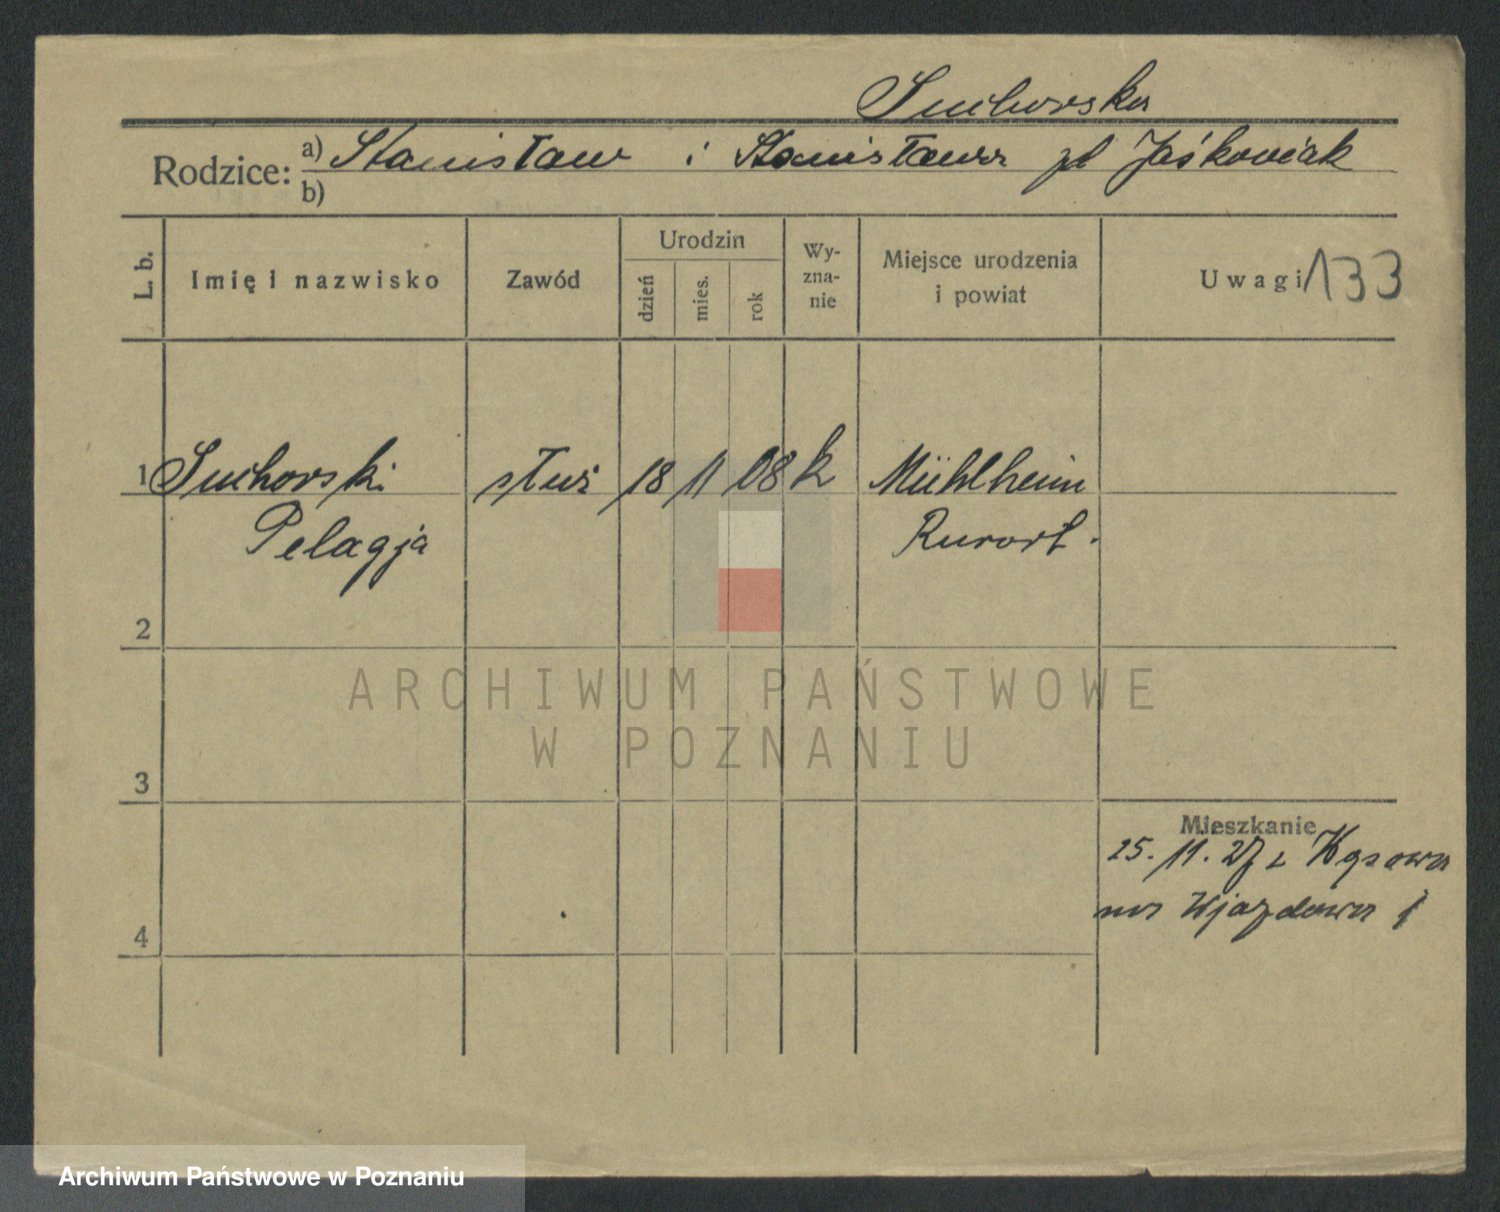 Suchorska
Rodzice: a) Stanisław i Stanisława zd Jaśkowiak
b)
L. b.
Imię i nazwisko
Zawód
Urodzin
dzień
mies.
rok
Wy-
zna-
nie
Miejsce urodzenia
i powiat
Uwagi 133
1 Suchorski służ 18 11 08 k Mühlheim
Pelagja Rurort.
2
ARCHIWUM PAŃSTWOWE
W POZNANIU
3
Mieszkanie
25. 11. 27 z
na Wjazdowa
4
Archiwum Państwowe w Poznaniu